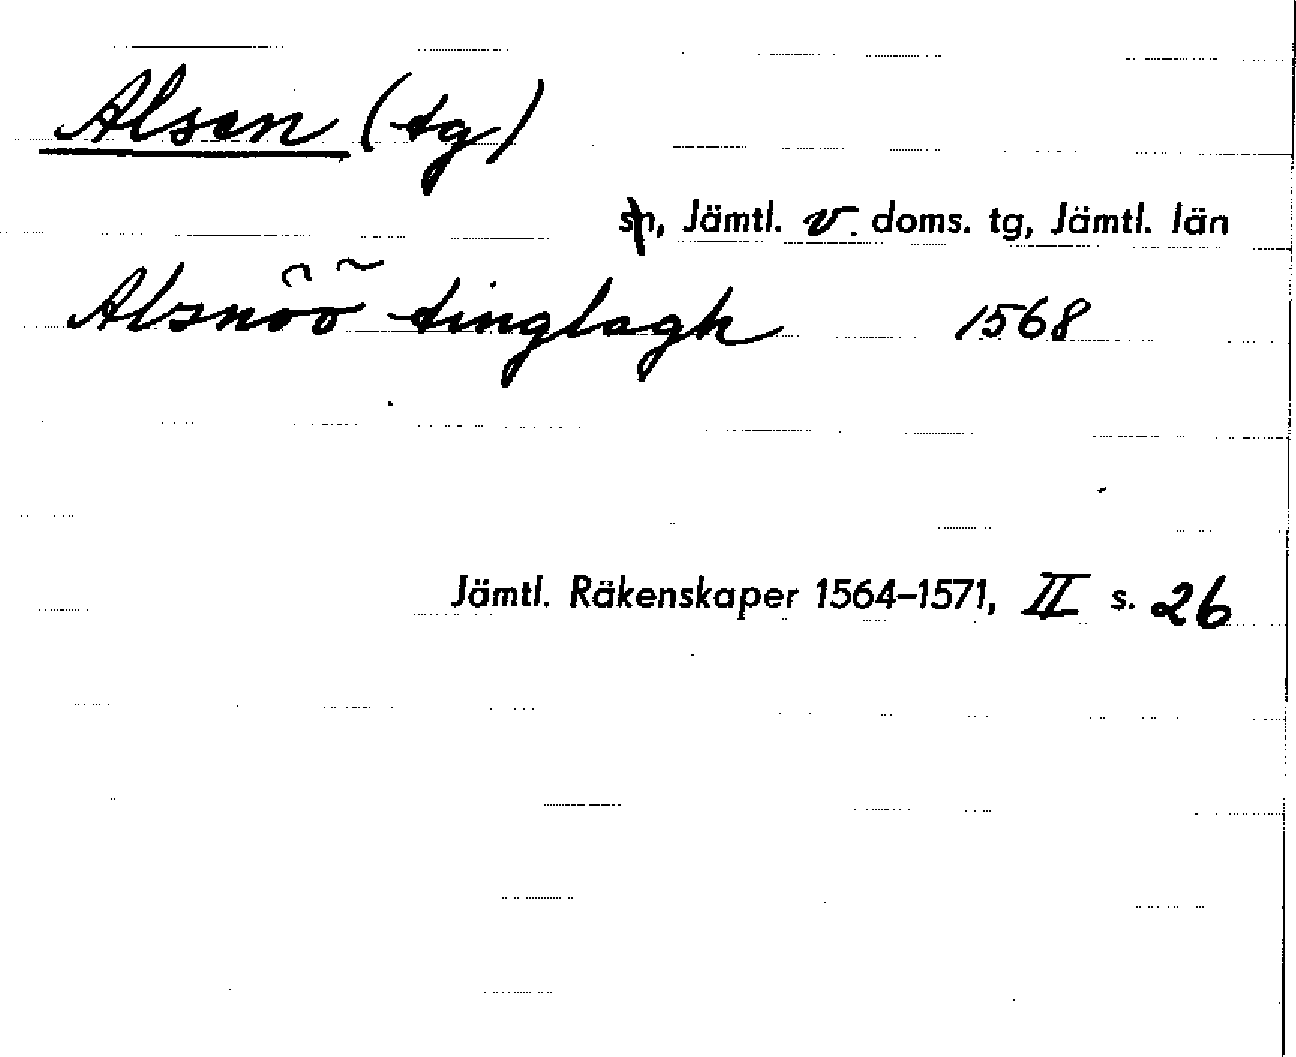 Alsen (tg)
sn, Jämtl. v. doms. tg, Jämtl. län
Alsnöö tinglagh 1568
Jämtl. Räkenskaper 1564–1571, II s. 26